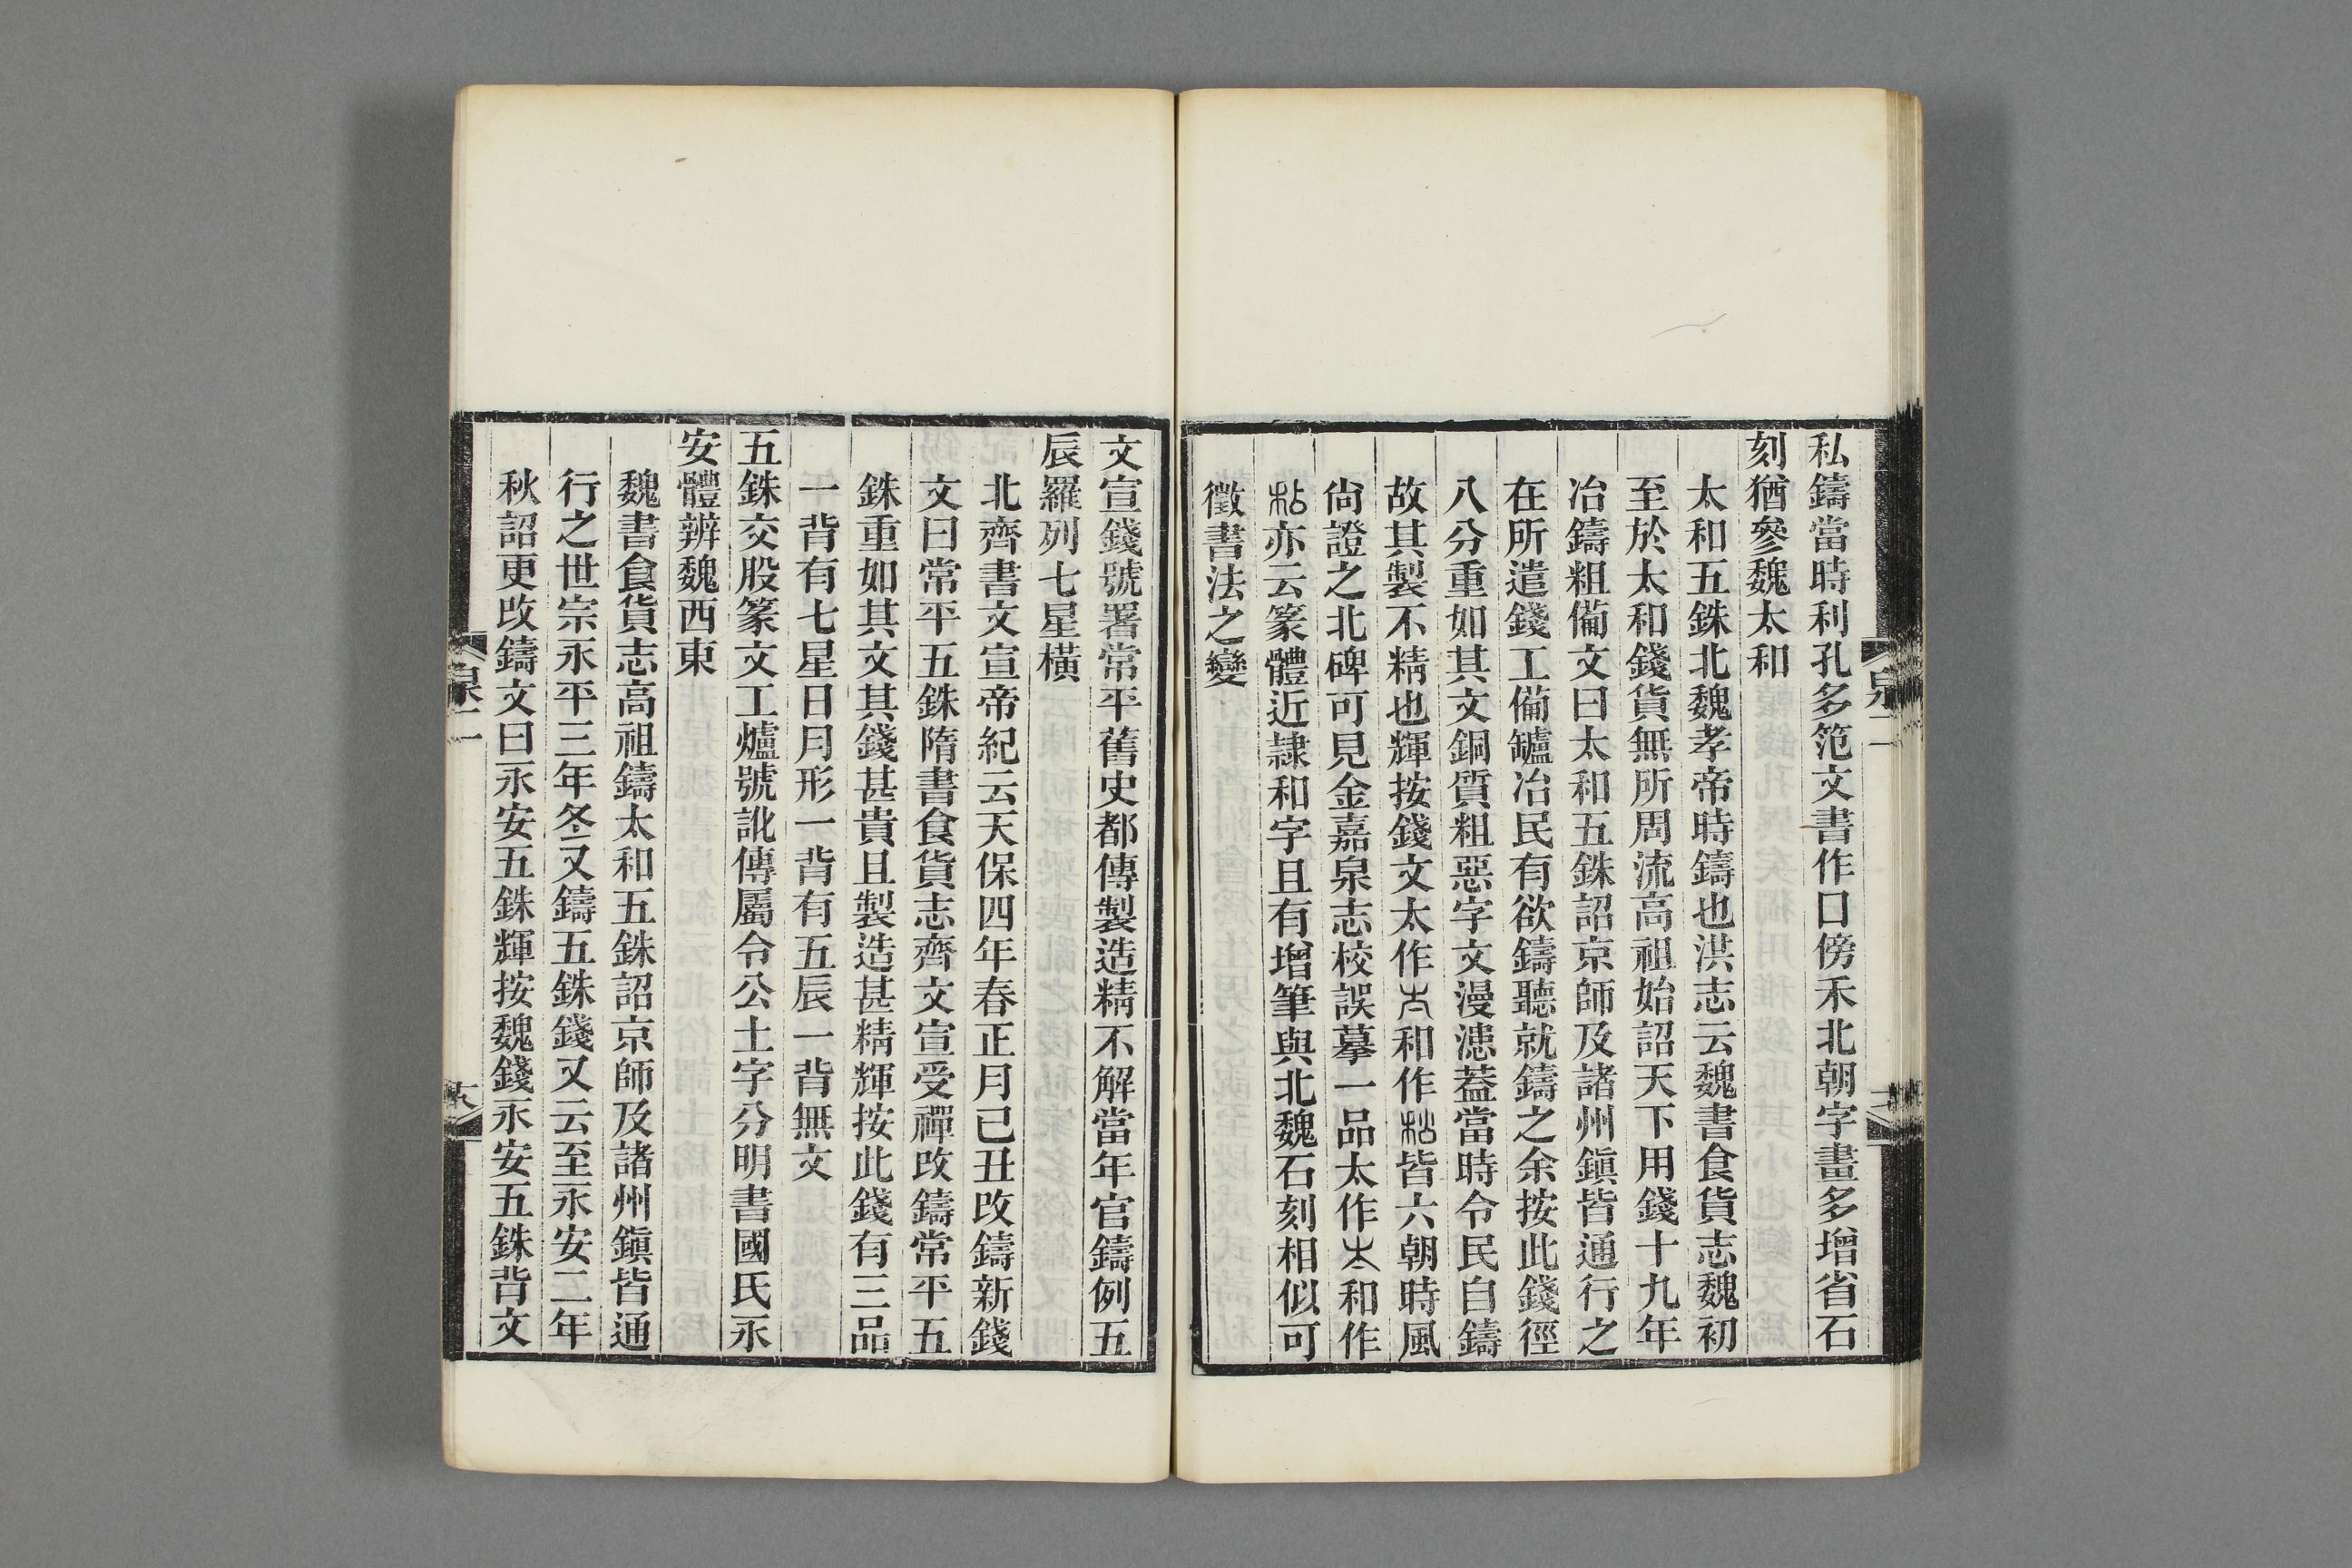 私鑄當時利孔多笵文書作口傍禾北朝字畫多增省石
刻猶參魏太和
太和五銖北魏孝帝時鑄也洪志云魏書食貨志魏初
至於太和錢貨無所周流高祖始詔天下用錢十九年
冶鑄粗備文曰太和五銖詔京師及諸州鎮皆通行之
在所遣錢工備罏冶民有欲鑄聽就鑄之余按此錢徑
八分重如其文銅質粗惡字文漫漶葢當時令民自鑄
故其製不精也輝按錢文太作和作皆六朝時風
尙證之北碑可見金嘉泉志校誤摹一品太作和作
亦云篆體近隷和字且有增筆與北魏石刻相似可
徵書法之變
文宣錢號署常平舊史都傳製造精不解當年官鑄例五
辰羅列七星橫
北齊書文宣帝紀云天保四年春正月己丑改鑄新錢
文曰常平五銖隋書食貨志齊文宣受禪改鑄常平五
銖重如其文其錢甚貴且製造甚精輝按此錢有三品
一背有七星日月形一背有五辰一背無文
五銖交股篆文工爐號訛傳屬令公土字分明書國氏永
安體辨魏西東
魏書食貨志高祖鑄太和五銖詔京師及諸州鎮皆通
行之世宗永平三年冬又鑄五銖錢又云至永安二年
秋詔更改鑄文曰永安五銖輝按魏錢永安五銖背文